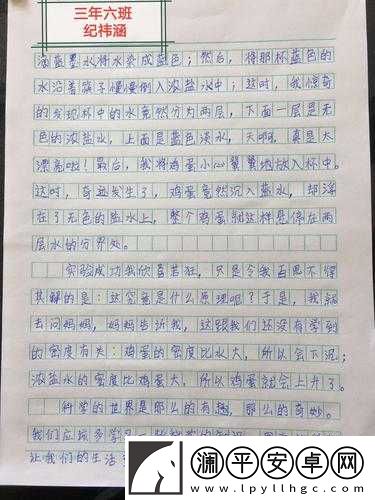 三年六班
纪祎涵
滴蓝墨水将水染成蓝色；然后，将那杯蓝色的
水沿着筷子慢慢倒入浓盐水中；这时，我惊奇
的发现杯中的水竟然分为两层，下面一层是无
色的浓盐水，上面是蓝色淡水，天啊，真是太
漂亮啦！最后，我将鸡蛋小心翼翼地放入杯中。
这时，奇迹发生了，鸡蛋竟然沉入盐水，却浮
在了无色的盐水上，整个鸡蛋就这样悬停在两
层水的分界处。
实验成功我欣喜若狂，只是令我百思不得
其解的是：这究竟是什么原理呢？于是，我就
去问妈妈，妈妈告诉我，这跟我们还没有学到
的密度有关：鸡蛋的密度比水大，所以会下沉；
浓盐水的密度比鸡蛋大，所以鸡蛋就会上升了。
科学的世界是那么的有趣，那么的奇妙。
我们应该多学习一些
让我们的生活
澜平安卓网
www.lpyllhcj.com